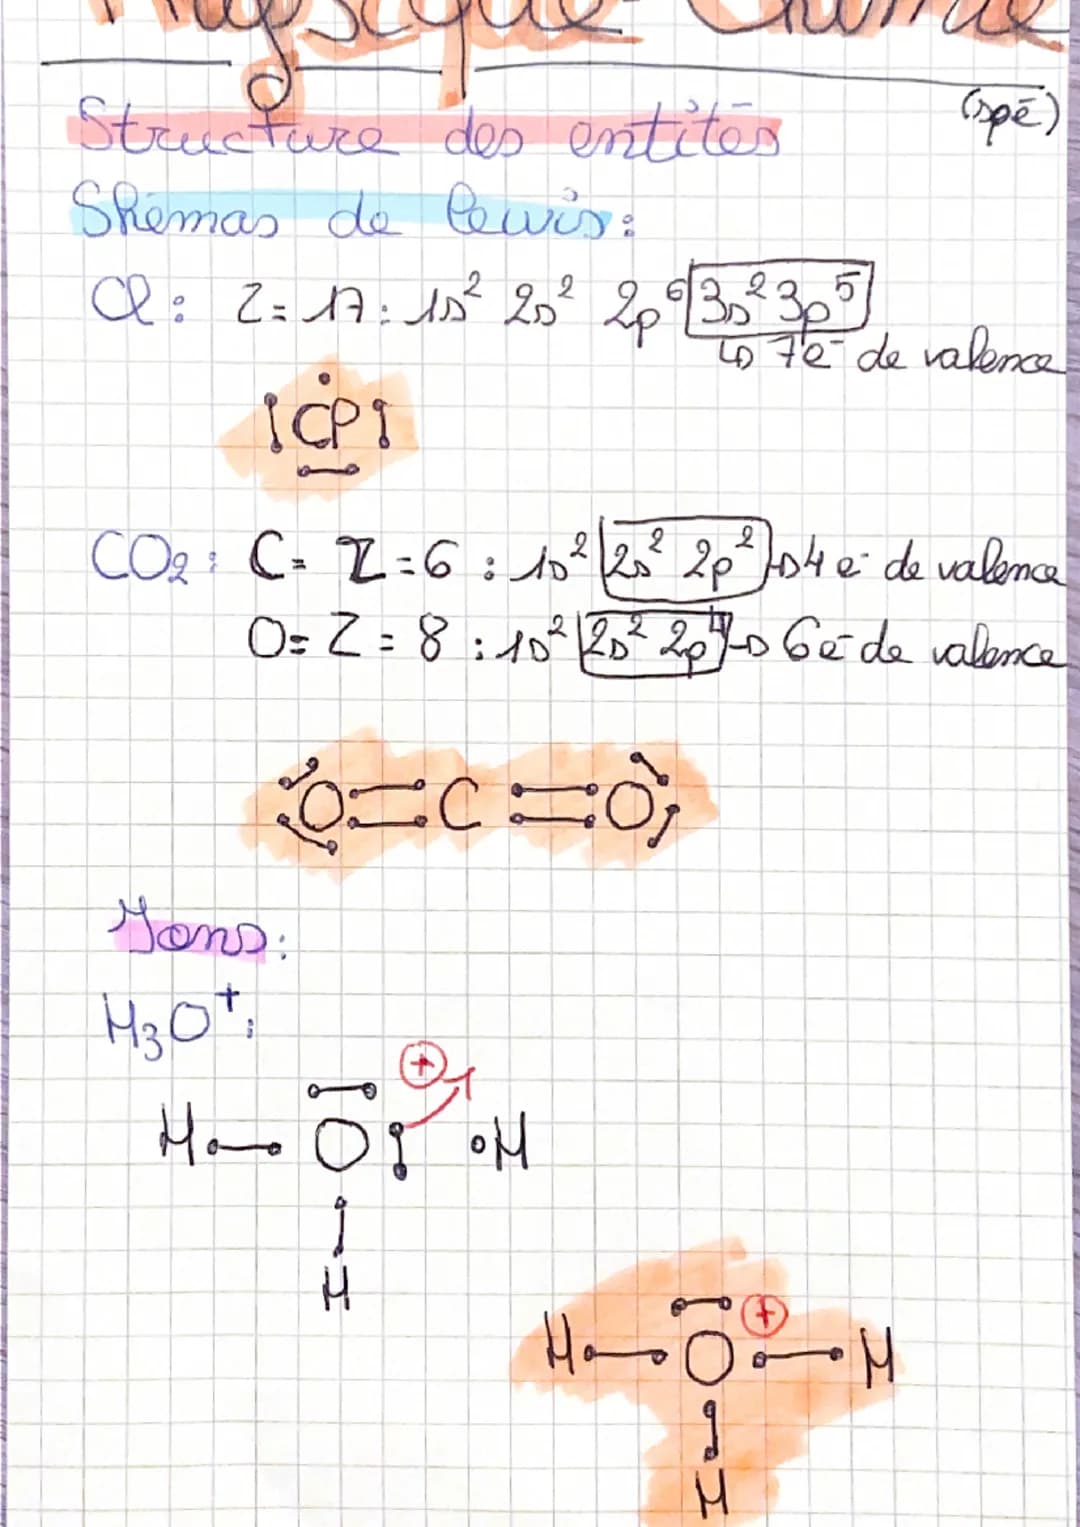 Physique-Chimie
(spé)
Structure des entités
Shémas de Lewis:
Cl: Z=17: 1s² 2s² 2p⁶ 3s² 3p⁵
↳ 7e⁻ de valence
Cl
CO₂: C= Z=6 : 1s² 2s² 2p² → 4e⁻ de valence
O= Z=8 : 1s² 2s² 2p⁴ → 6e⁻ de valence
O=C=O
Ions:
H₃O⁺:
+
H O H
H
+
H O H
H